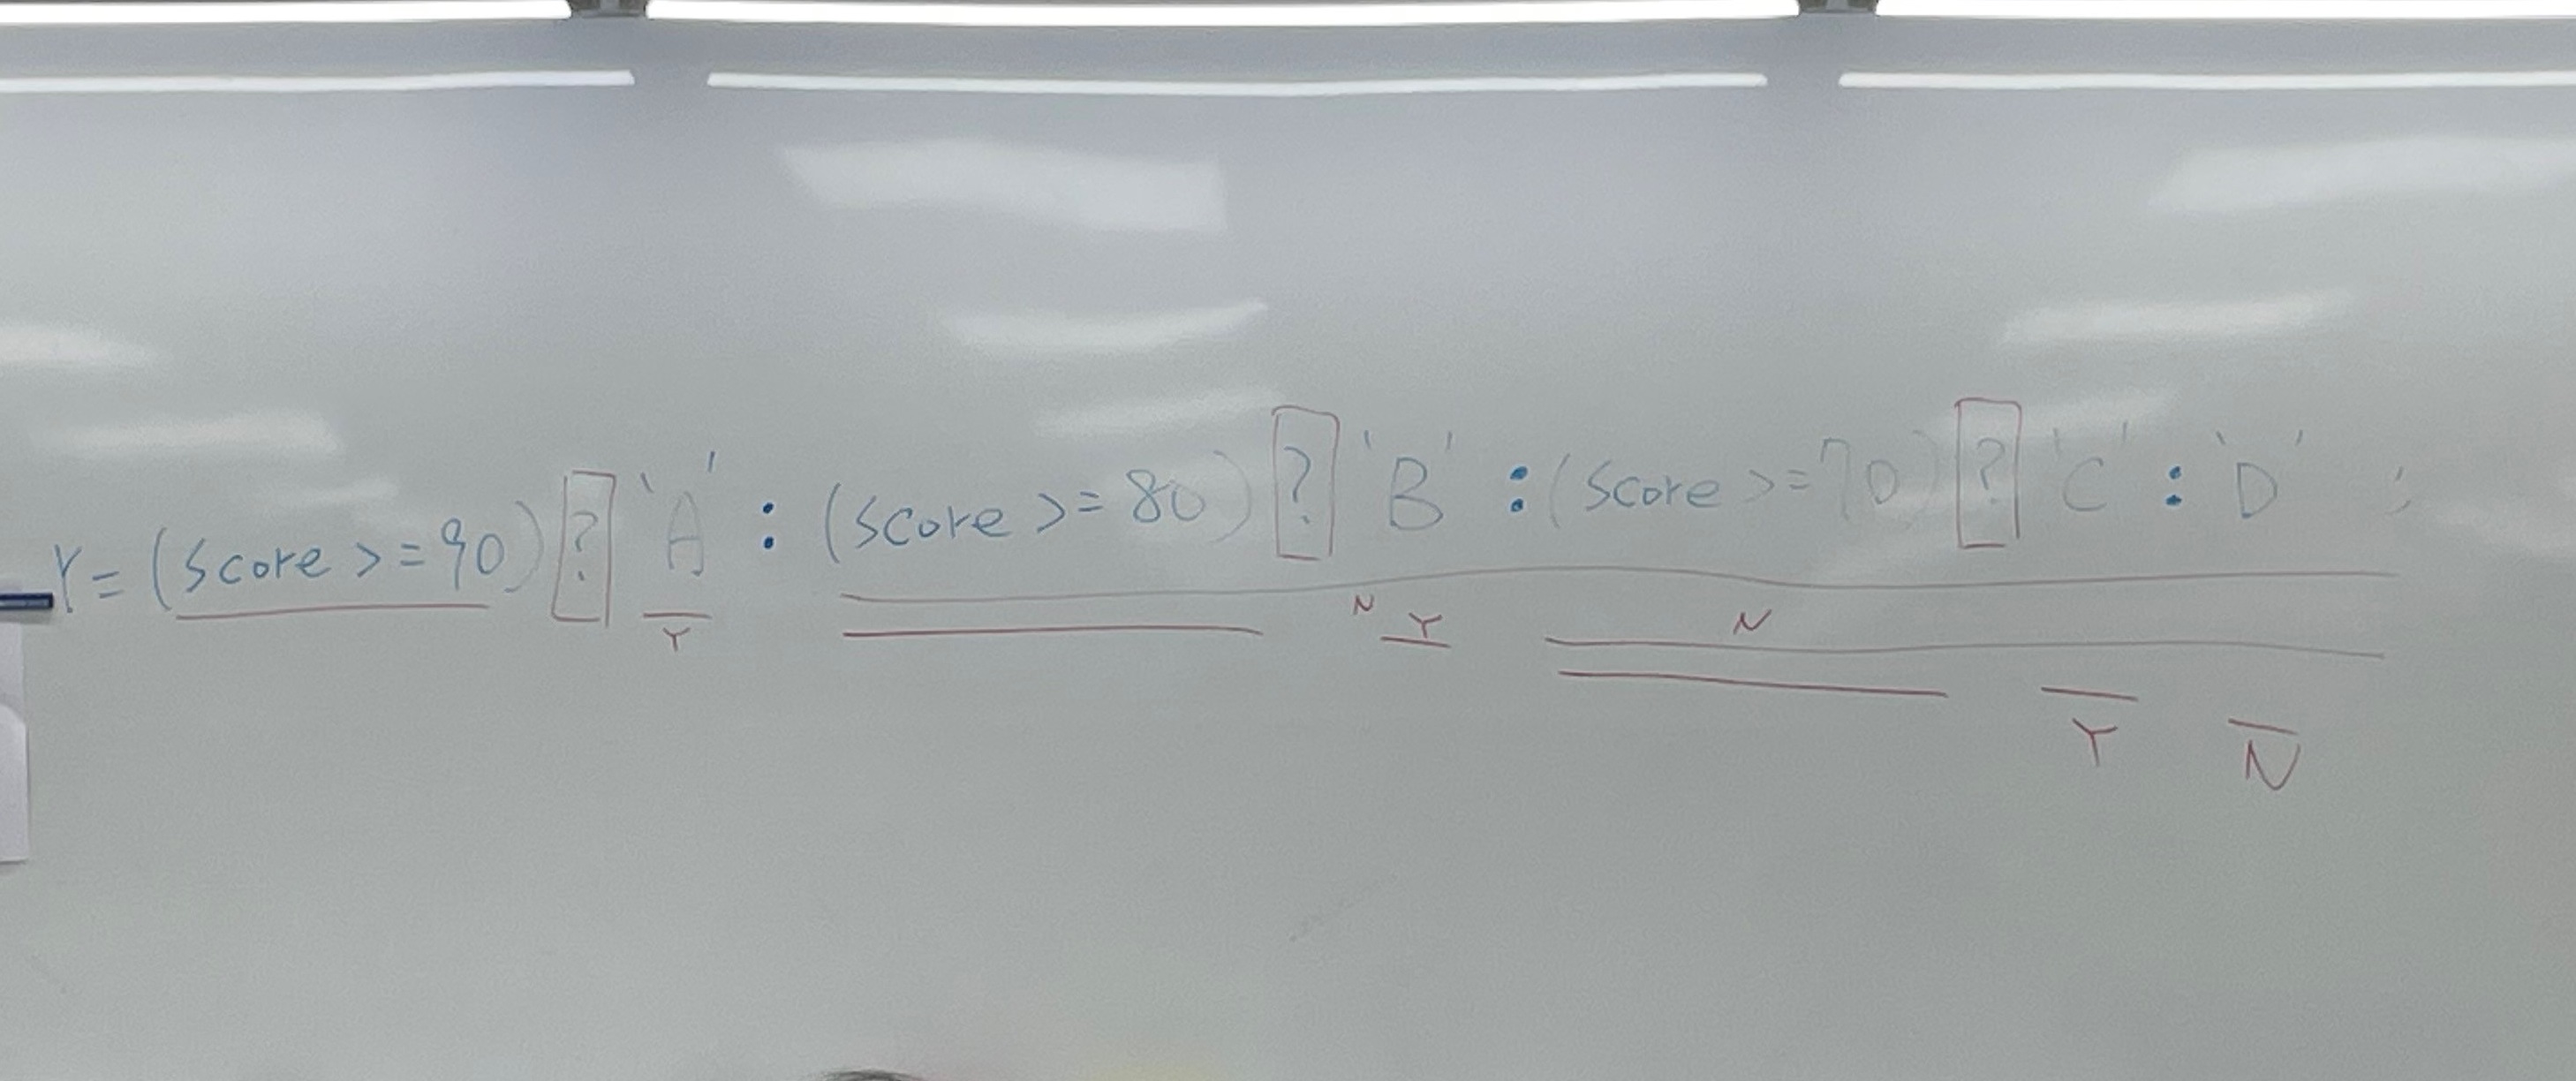 Y = (Score >= 90) ? 'A' : (Score >= 80) ? 'B' : (Score >= 70) ? 'C' : 'D' ;
Y N Y N
Y N